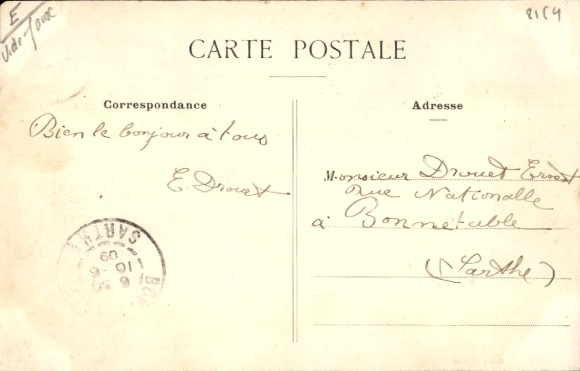 E
2154
CARTE POSTALE
Correspondance
Bien le bonjour à tous
E. Drouet
Adresse
Monsieur Drouet Ernest
Rue Nationalle
à Bonnétable
(Sarthe)
SARTHE
6 30
10 -6
09